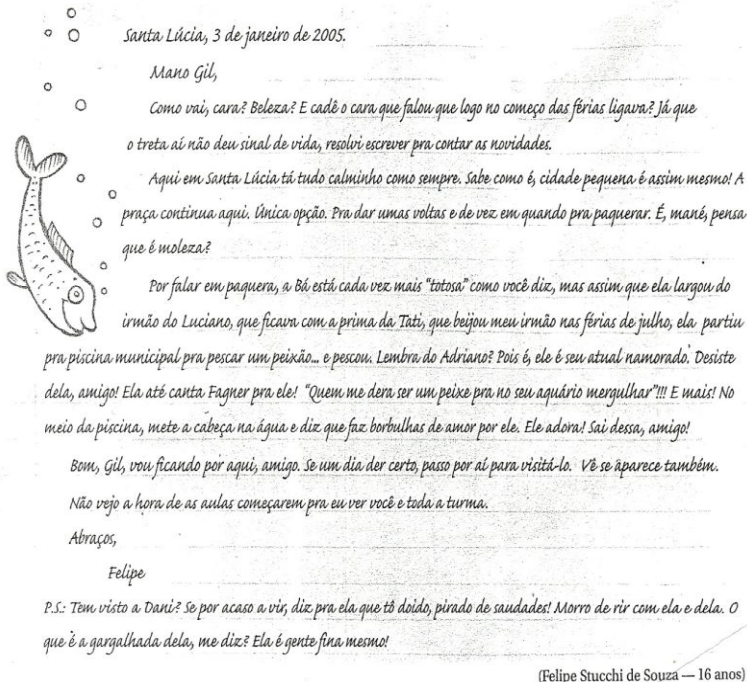 Santa Lúcia, 3 de janeiro de 2005.
Mano Gil,
Como vai, cara? Beleza? E cadê o cara que falou que logo no começo das férias ligava? Já que
o treta aí não deu sinal de vida, resolvi escrever pra contar as novidades.
Aqui em Santa Lúcia tá tudo calminho como sempre. Sabe como é, cidade pequena é assim mesmo! A
praça continua aqui. Única opção. Pra dar umas voltas e de vez em quando pra paquerar. É, mané, pensa
que é moleza?
Por falar em paquera, a Bá está cada vez mais "totosa" como você diz, mas assim que ela largou do
irmão do Luciano, que ficava com a prima da Tati, que beijou meu irmão nas férias de julho, ela partiu
pra piscina municipal pra pescar um peixão... e pescou. Lembra do Adriano? Pois é, ele é seu atual namorado. Desiste
dela, amigo! Ela até canta Fagner pra ele! "Quem me dera ser um peixe pra no seu aquário mergulhar"!!! E mais! No
meio da piscina, mete a cabeça na água e diz que faz borbulhas de amor por ele. Ele adora! Sai dessa, amigo!
Bom, Gil, vou ficando por aqui, amigo. Se um dia der certo, passo por aí para visitá-lo. Vê se aparece também.
Não vejo a hora de as aulas começarem pra eu ver você e toda a turma.
Abraços,
Felipe
P.S.: Tem visto a Dani? Se por acaso a vir, diz pra ela que tô doido, pirado de saudades! Morro de rir com ela e dela. O
que é a gargalhada dela, me diz? Ela é gente fina mesmo!
(Felipe Stucchi de Souza — 16 anos)